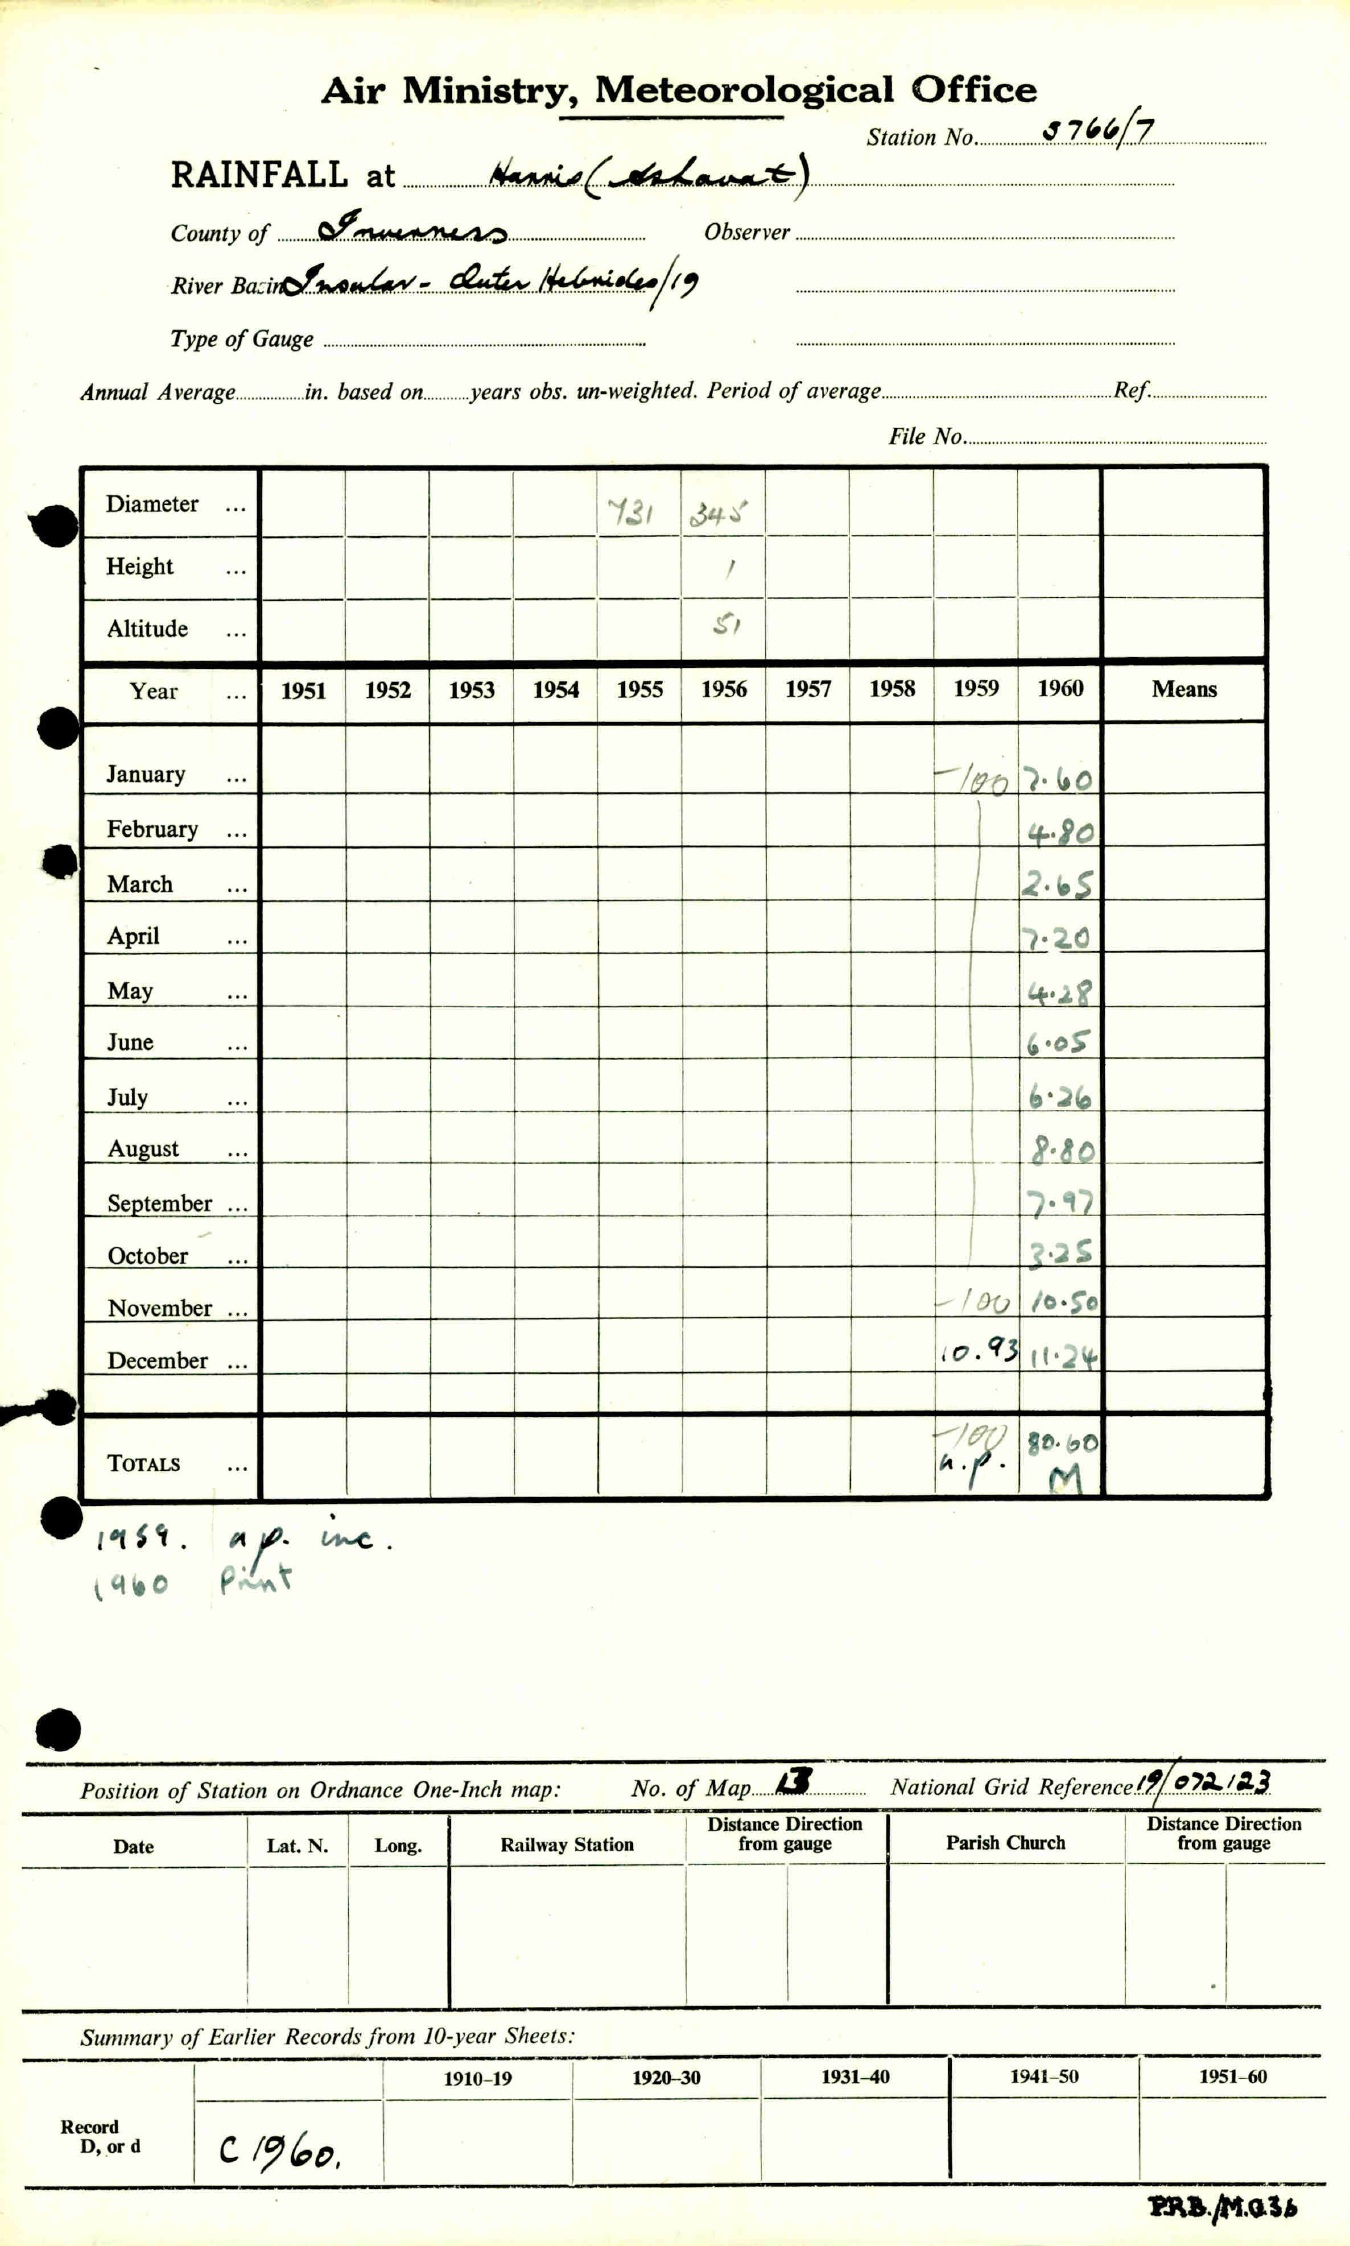 Air Ministry, Meteorological Office
Station No. 5766/7
RAINFALL at Harris (Ashavat)
County of Inverness Observer
River Basin Insular - Outer Hebrides/19
Type of Gauge
Annual Average in. based on years obs. un-weighted. Period of average Ref.
File No.
Diameter ... 731 345
Height ... 1
Altitude ... 51
Year ... 1951 1952 1953 1954 1955 1956 1957 1958 1959 1960 Means
January ... -100 7.60
February ... 4.80
March ... 2.65
April ... 7.20
May ... 4.28
June ... 6.05
July ... 6.26
August ... 8.80
September ... 7.97
October ... 3.25
November ... -100 10.50
December ... 10.93 11.24
-100 80.60
TOTALS ... n.p. M
1959. n.p. inc.
1960 Print
Position of Station on Ordnance One-Inch map: No. of Map 13 National Grid Reference 19/072123
Date Lat. N. Long. Railway Station Distance Direction from gauge Parish Church Distance Direction from gauge
Summary of Earlier Records from 10-year Sheets:
1910–19 1920–30 1931–40 1941–50 1951–60
Record
D, or d C 1960.
P.R.B./M.O.36